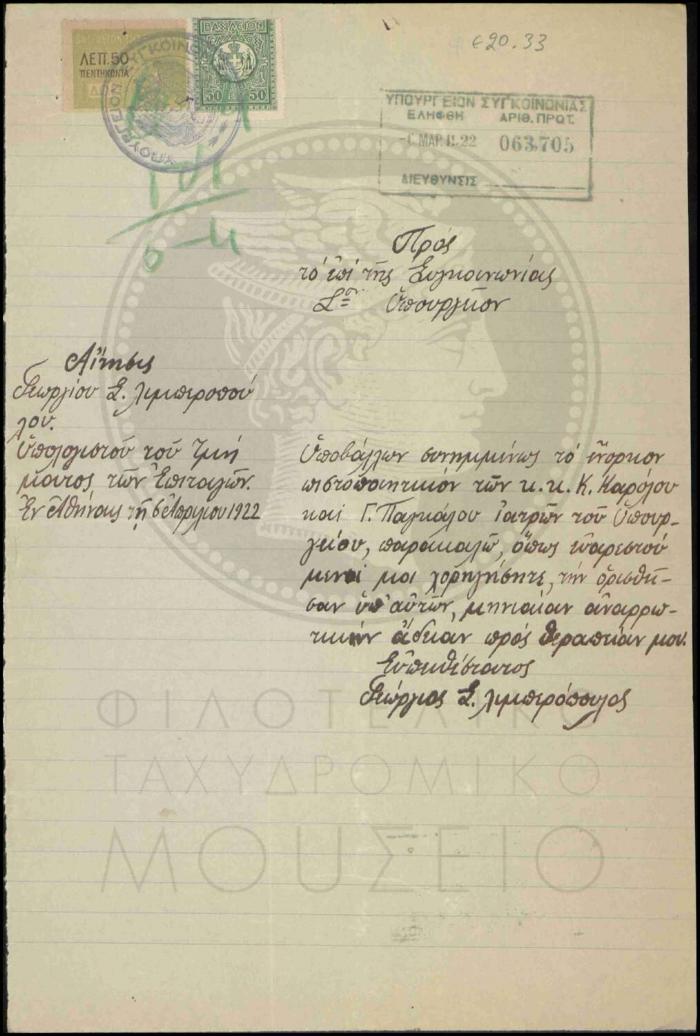 €20.33
ΛΕΠ. 50
ΠΕΝΤΗΚΟΝΤΑ
ΒΑΣΙΛΕΙΟΝ
50 50
ΥΠΟΥΡΓΕΙΟΝ ΣΥΓΚΟΙΝΩΝΙΑΣ
ΕΛΗΦΘΗ ΑΡΙΘ. ΠΡΩΤ.
ΜΑΡ 1922 063705
ΔΙΕΥΘΥΝΣΙΣ
Πρός
τό ἐπί τῆς Συγκοινωνίας
Σ=όν Ὑπουργεῖον
Αἴτησις
Γεωργίου Σ. Λιμπεροπού
λου.
Ὑπολογιστοῦ τοῦ Τμή
ματος τῶν Ἐπιταγῶν.
Ἐν Ἀθήναις τῇ 6 Ἀπριλίου 1922
Ὑποβάλλων συνημμένως τό ἔνορκον
πιστοποιητικόν τῶν κ.κ. Κ. Καρόλου
καί Γ. Παγκάλου ἰατρῶν τοῦ Ὑπουρ-
γείου, παρακαλῶ, ὅπως εὐαρεστού
μενοι μοι χορηγήσητε, τήν ὁρισθεῖ-
σαν ὑπ' αὐτῶν, μηνιαίαν ἀναρρω-
τικήν ἄδειαν πρός θεραπείαν μου.
Εὐπειθέστατος
Γεώργιος Σ. Λιμπερόπουλος
ΦΙΛΟΤΕΛΙΚΟ
ΤΑΧΥΔΡΟΜΙΚΟ
ΜΟΥΣΕΙΟ